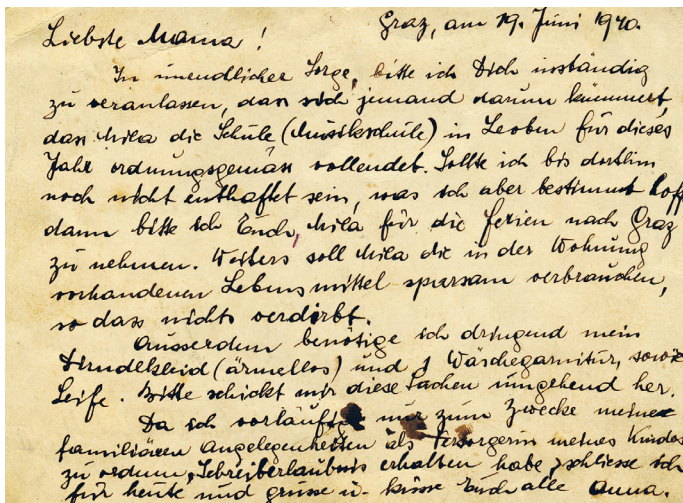 Graz, am 19. Juni 1940.
Liebste Mama!
In unendlicher Sorge, bitte ich Dich inständig
zu veranlassen, dass sich jemand darum kümmert,
dass Mila die Schule (Musikschule) in Leoben für dieses
Jahr ordnungsgemäss vollendet. Sollte ich bis dorthin
noch nicht enthaftet sein, was ich aber bestimmt hoff
dann bitte ich Euch, Mila für die Ferien nach Graz
zu nehmen. Weiters soll Mila die in der Wohnung
vorhandenen Lebensmittel sparsam verbrauchen,
so dass nichts verdirbt.
Ausserdem benötige ich dringend mein
Dirndelkleid (ärmellos) und 1 Wäschegarnitur, sowie
Seife. Bitte schickt mir diese Sachen umgehend her.
Da ich vorläufig nur zum Zwecke meiner
familiären Angelegenheiten als Versorgerin meines Kindes
zu ordnen, Schreiberlaubnis erhalten habe, schliesse ich
für heute und grüsse u. küsse Euch alle Anna.